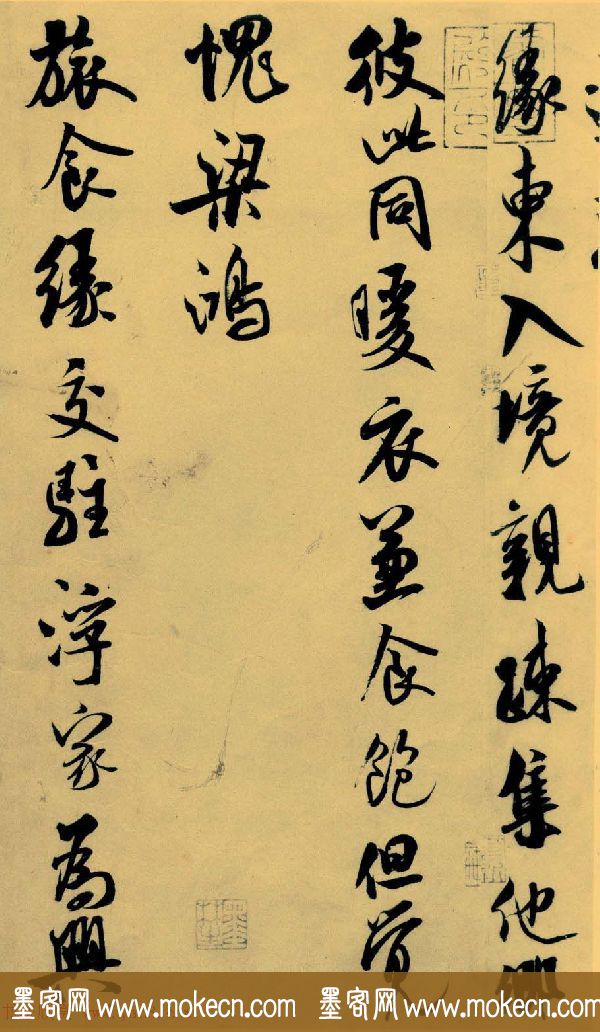 緣東入境親疎集他鄉
彼此同暖衣兼食飽但覺
愧梁鴻
旅食緣交駐浮家為興
墨客网 www.mokecn.com 墨客网 www.mokecn.com